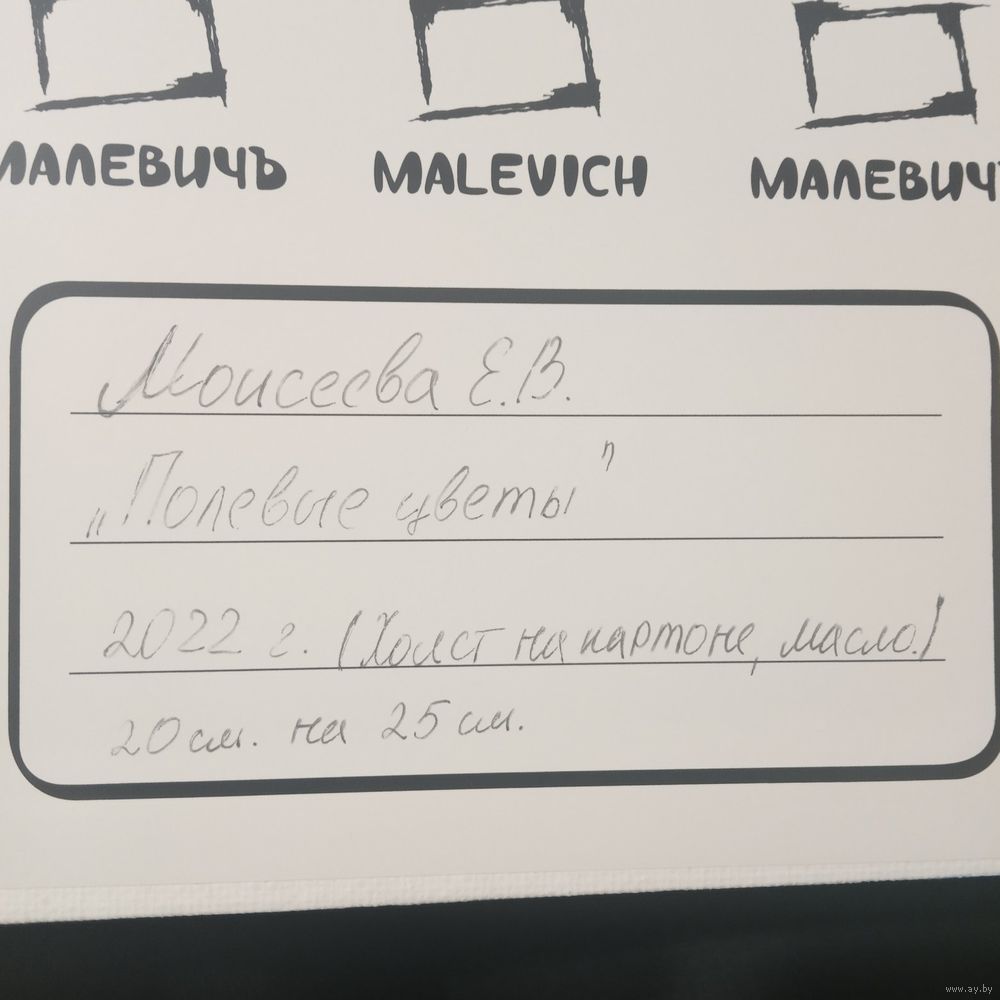 МАЛЕВИЧЪ MALEVICH МАЛЕВИЧЪ
Моисеева Е.В.
„Полевые цветы"
2022 г. (Холст на картоне, масло.)
20 см. на 25 см.
www.ay.by